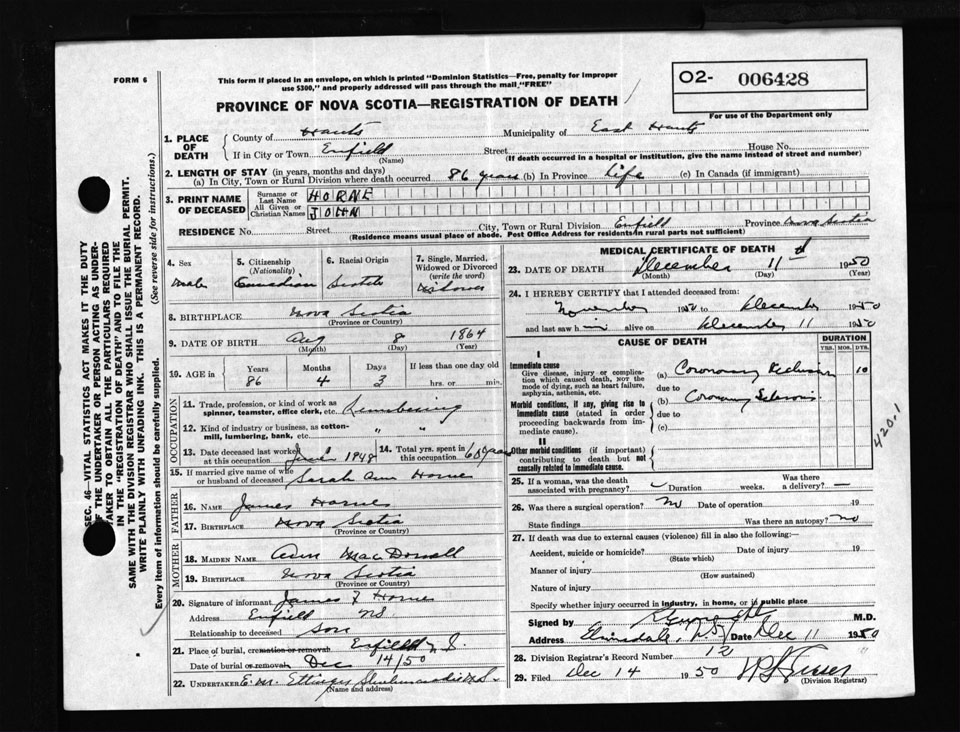 FORM 6
This form if placed in an envelope, on which is printed "Dominion Statistics—Free, penalty for improper
use $300," and properly addressed will pass through the mail "FREE"
O2- 006428
For use of the Department only
PROVINCE OF NOVA SCOTIA—REGISTRATION OF DEATH
SEC. 46—VITAL STATISTICS ACT MAKES IT THE DUTY
OF THE UNDERTAKER OR PERSON ACTING AS UNDER-
TAKER TO OBTAIN ALL THE PARTICULARS REQUIRED
IN THE "REGISTRATION OF DEATH" AND TO FILE THE
SAME WITH THE DIVISION REGISTRAR WHO SHALL ISSUE THE BURIAL PERMIT.
WRITE PLAINLY WITH UNFADING INK. THIS IS A PERMANENT RECORD.
Every item of information should be carefully supplied. (See reverse side for instructions.)
1. PLACE OF DEATH
County of Hants Municipality of East Hants
If in City or Town Enfield Street House No.
(Name) (If death occurred in a hospital or institution, give the name instead of street and number)
2. LENGTH OF STAY (in years, months and days)
(a) In City, Town or Rural Division where death occurred 86 years (b) In Province Life (c) In Canada (if immigrant)
3. PRINT NAME OF DECEASED
Surname or Last Name HORNE
All Given or Christian Names JOHN
RESIDENCE No. Street City, Town or Rural Division Enfield Province Nova Scotia
(Residence means usual place of abode. Post Office Address for residents in rural parts not sufficient)
4. Sex Male
5. Citizenship (Nationality) Canadian
6. Racial Origin Scotch
7. Single, Married, Widowed or Divorced (write the word) Widower
8. BIRTHPLACE Nova Scotia
(Province or Country)
9. DATE OF BIRTH Aug 8 1864
(Month) (Day) (Year)
10. AGE in Years Months Days If less than one day old
86 4 3 hrs. or min.
OCCUPATION
11. Trade, profession, or kind of work as
spinner, teamster, office clerk, etc. Lumbering
12. Kind of industry or business, as cotton-
mill, lumbering, bank, etc. " "
13. Date deceased last worked at this occupation 1948
14. Total yrs. spent in this occupation. 60 years
15. If married give name of wife
or husband of deceased Sarah Ann Horne
FATHER
16. Name James Horne
17. Birthplace Nova Scotia
(Province or Country)
MOTHER
18. Maiden Name Ann MacDonall
19. Birthplace Nova Scotia
(Province or Country)
20. Signature of informant James F Horne
Address Enfield NS.
Relationship to deceased Son
21. Place of burial, cremation or removal Enfield N.S.
Date of burial or removal Dec 14/50
22. UNDERTAKER E. M. Ettinger Shubenacadie N.S.
(Name and address)
MEDICAL CERTIFICATE OF DEATH
23. DATE OF DEATH December 11th 1950
(Month) (Day) (Year)
24. I HEREBY CERTIFY that I attended deceased from:
November 1950 to December 1950
and last saw him alive on December 11 1950
CAUSE OF DEATH
DURATION
YRS. MOS. DYS.
I
Immediate cause
Give disease, injury or complica-
tion which caused death, not the
mode of dying, such as heart failure,
asphyxia, asthenia, etc.
(a) Coronary 10
due to
Morbid conditions, if any, giving rise to
immediate cause (stated in order
proceeding backwards from im-
mediate cause).
(b) Coronary
due to
(c)
II
Other morbid conditions (if important)
contributing to death but not
causally related to immediate cause.
4201
25. If a woman, was the death
associated with pregnancy? — Duration weeks. Was there a delivery? —
26. Was there a surgical operation? No Date of operation 19
State findings Was there an autopsy? No
27. If death was due to external causes (violence) fill in also the following:—
Accident, suicide or homicide? Date of injury 19
(State which)
Manner of injury
(How sustained)
Nature of injury
Specify whether injury occurred in industry, in home, or in public place
Signed by M.D.
Address Elmsdale, N.S. Date Dec 11 1950
28. Division Registrar's Record Number 12
29. Filed Dec 14 1950
(Division Registrar)